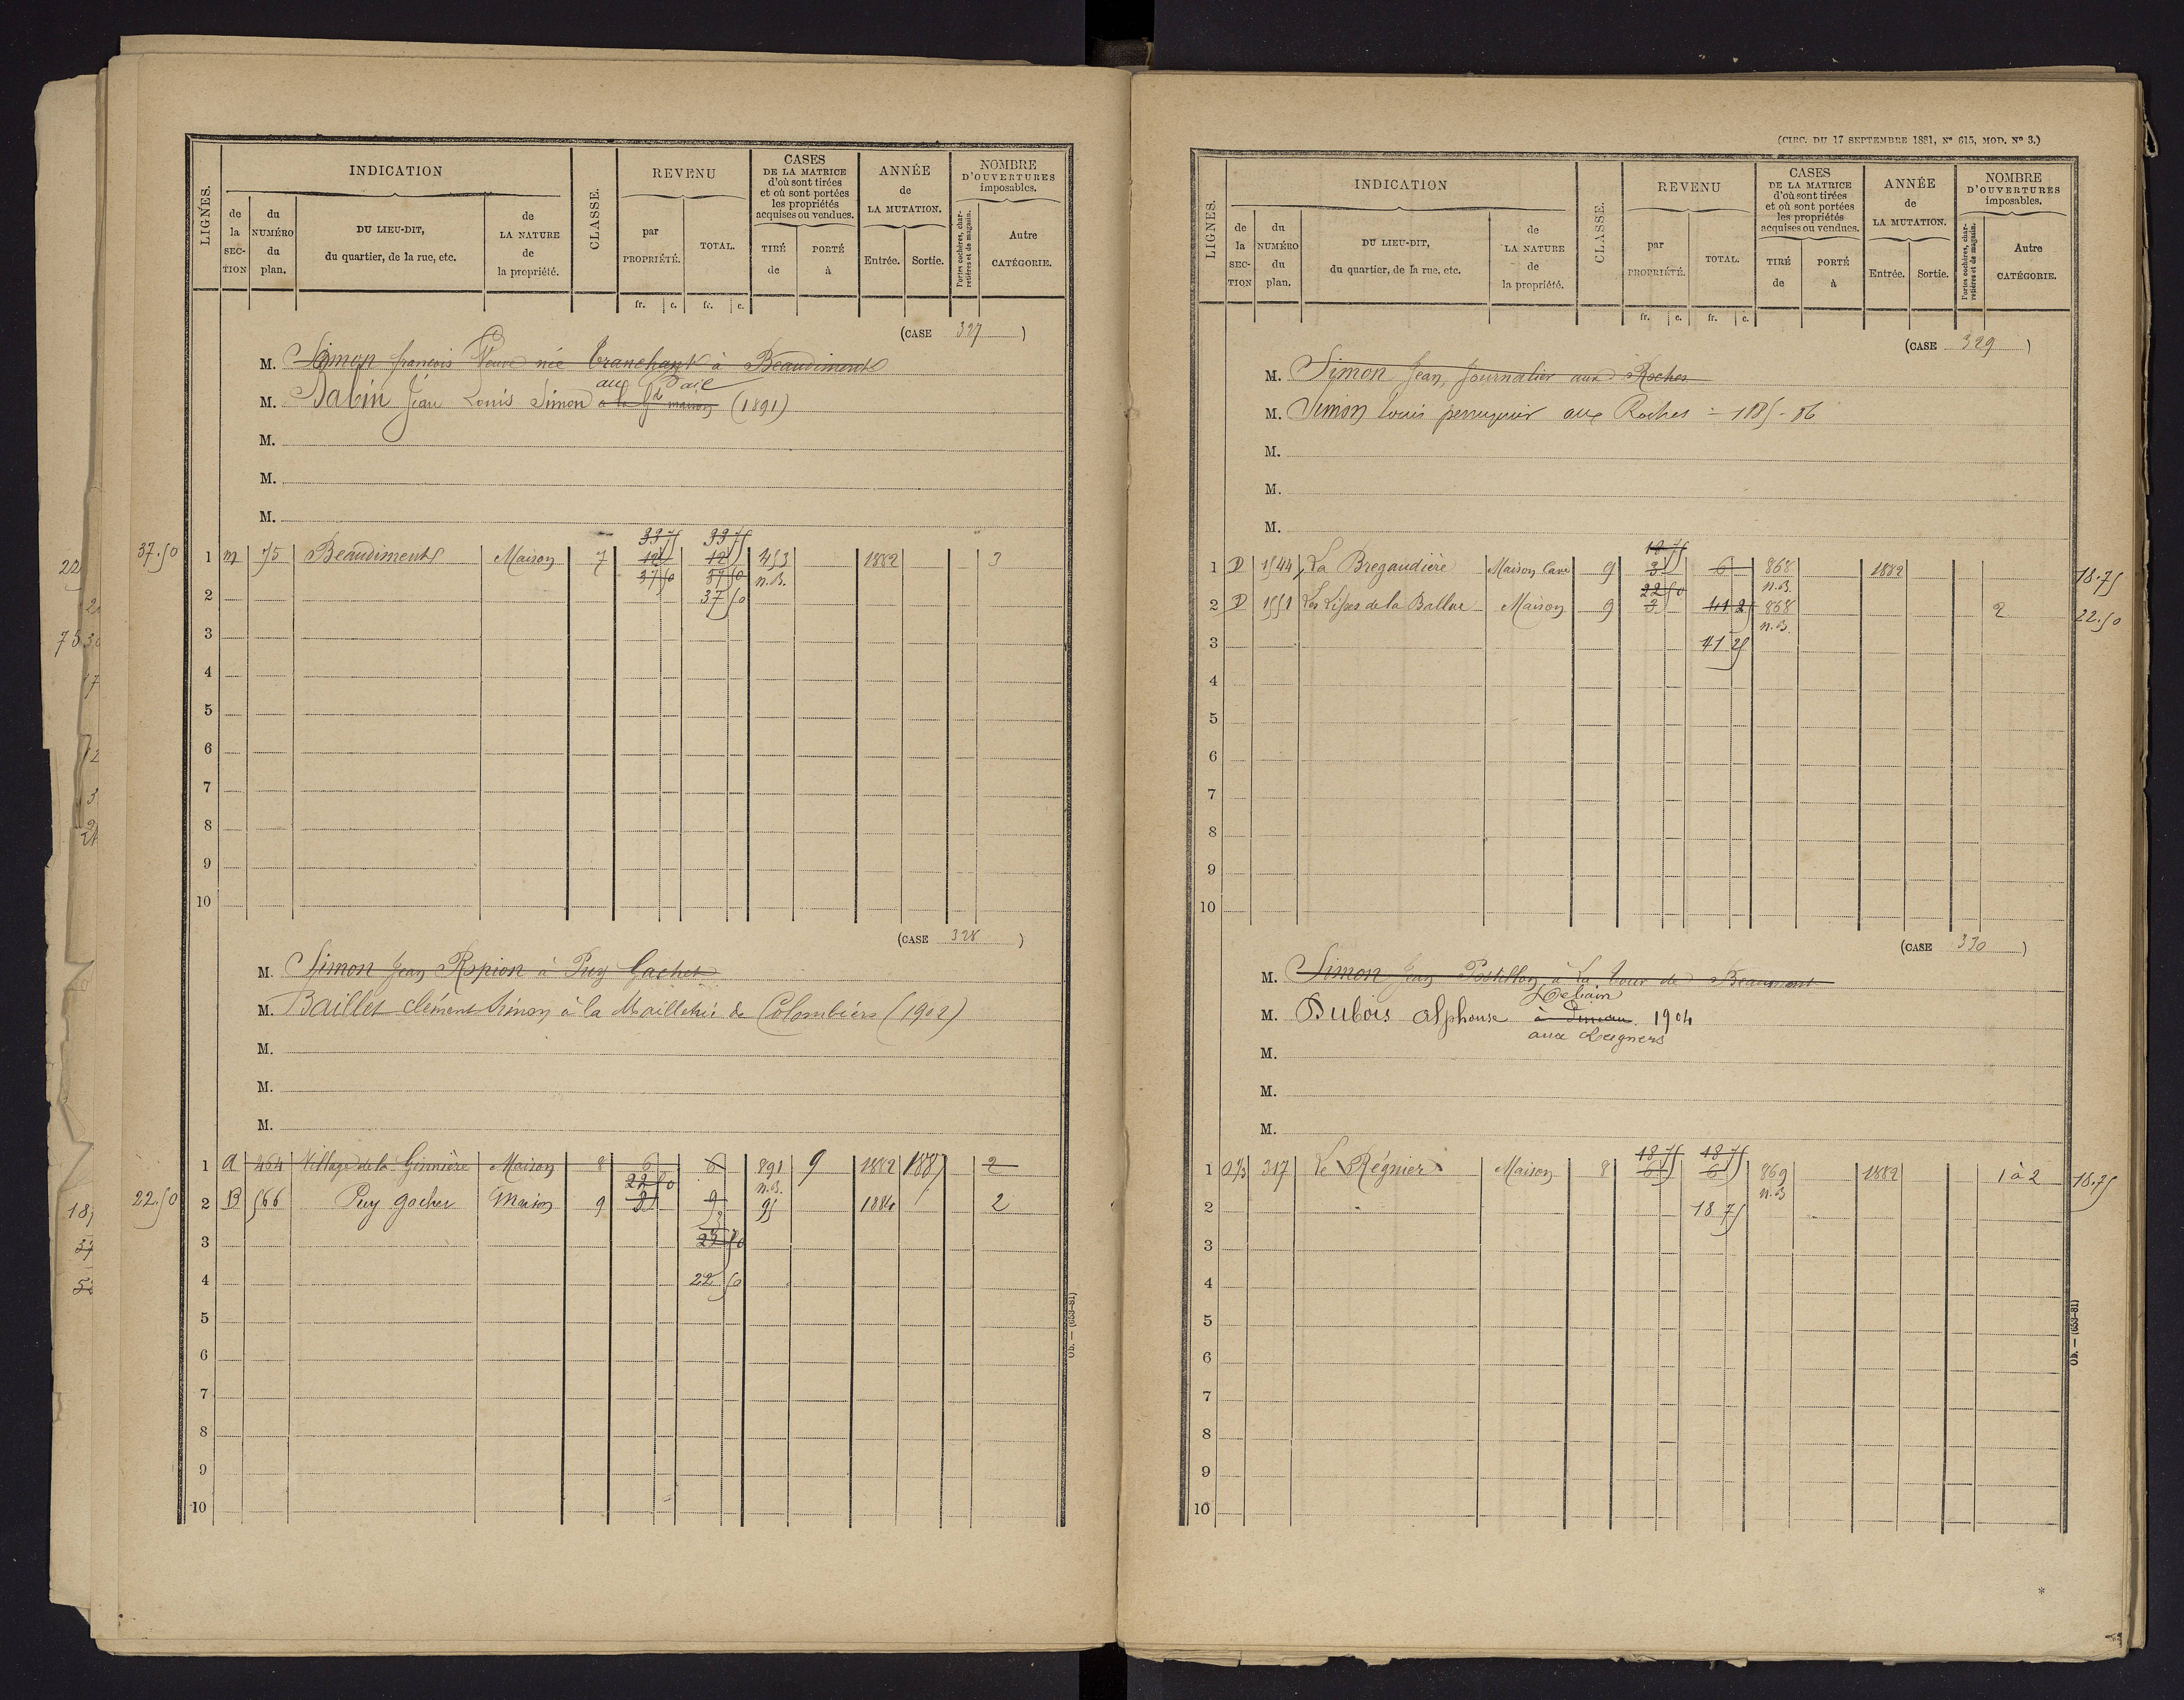 LIGNES.
INDICATION
de la SECTION
du NUMÉRO du plan.
DU LIEU-DIT, du quartier, de la rue, etc.
de LA NATURE de la propriété.
CLASSE.
REVENU
par PROPRIÉTÉ.
TOTAL.
CASES DE LA MATRICE d'où sont tirées et où sont portées les propriétés acquises ou vendues.
TIRÉ de
PORTÉ à
ANNÉE de LA MUTATION.
Entrée.
Sortie.
NOMBRE D'OUVERTURES imposables.
Portes cochères, charretières et de magasin.
Autre CATÉGORIE.
fr. c. fr. c.
(CASE 327)
M. Simon françois Veuve née Tranchant à Beaudiments
au
M. Dabin Jean Louis Simon à la Gde maison (1891)
M.
M.
M.
33 75 33 75
37.50 1 m 75 Beaudiments Maison 7 12 12 453 1882 3
37 50 37 50 n.B.
2 37 50
3
4
5
6
7
8
9
10
(CASE 328)
M. Simon Jean Rspion à Puy Gachet
M. Baillet clément Simon à la Mailletrie de Colombiers (1902)
M.
M.
M.
1 A 464 Village de la Ginnière Maison 8 6 6 891 9 1882 1887 2
22 50 n.B.
22.50 2 B 566 Puy gacher maison 9 3 9 95 1884 2
3
4 22 50
5
6
7
8
9
10
Ob. — (653-81)
(CIRC. DU 17 SEPTEMBRE 1881, N° 615, MOD. N° 3.)
LIGNES.
INDICATION
de la SECTION
du NUMÉRO du plan.
DU LIEU-DIT, du quartier, de la rue, etc.
de LA NATURE de la propriété.
CLASSE.
REVENU
par PROPRIÉTÉ.
TOTAL.
CASES DE LA MATRICE d'où sont tirées et où sont portées les propriétés acquises ou vendues.
TIRÉ de
PORTÉ à
ANNÉE de LA MUTATION.
Entrée.
Sortie.
NOMBRE D'OUVERTURES imposables.
Portes cochères, charretières et de magasin.
Autre CATÉGORIE.
fr. c. fr. c.
(CASE 329)
M. Simon Jean, Journalier aux Roches
M. Simon Louis perruquier aux Roches = 1885-86
M.
M.
M.
18 75
1 D 1544 La Bregaudière Maison Cave 9 3 6 868 1882 18.75
22 50 n.B.
2 D 1551 Les Lises de la Ballue Maison 9 3 41 25 868 2 22.50
n.B.
3 41 25
4
5
6
7
8
9
10
(CASE 330)
M. Simon Jean Postillon à La Tour de Beaumont
M. Dubois Alphonse 1904
aux
M.
M.
M.
18 75 18 75
1 317 Le Régnier Maison 8 6 6 869 1882 1 à 2 18.75
n.B
2 18 75
3
4
5
6
7
8
9
10
Ob. — (653-81)
*